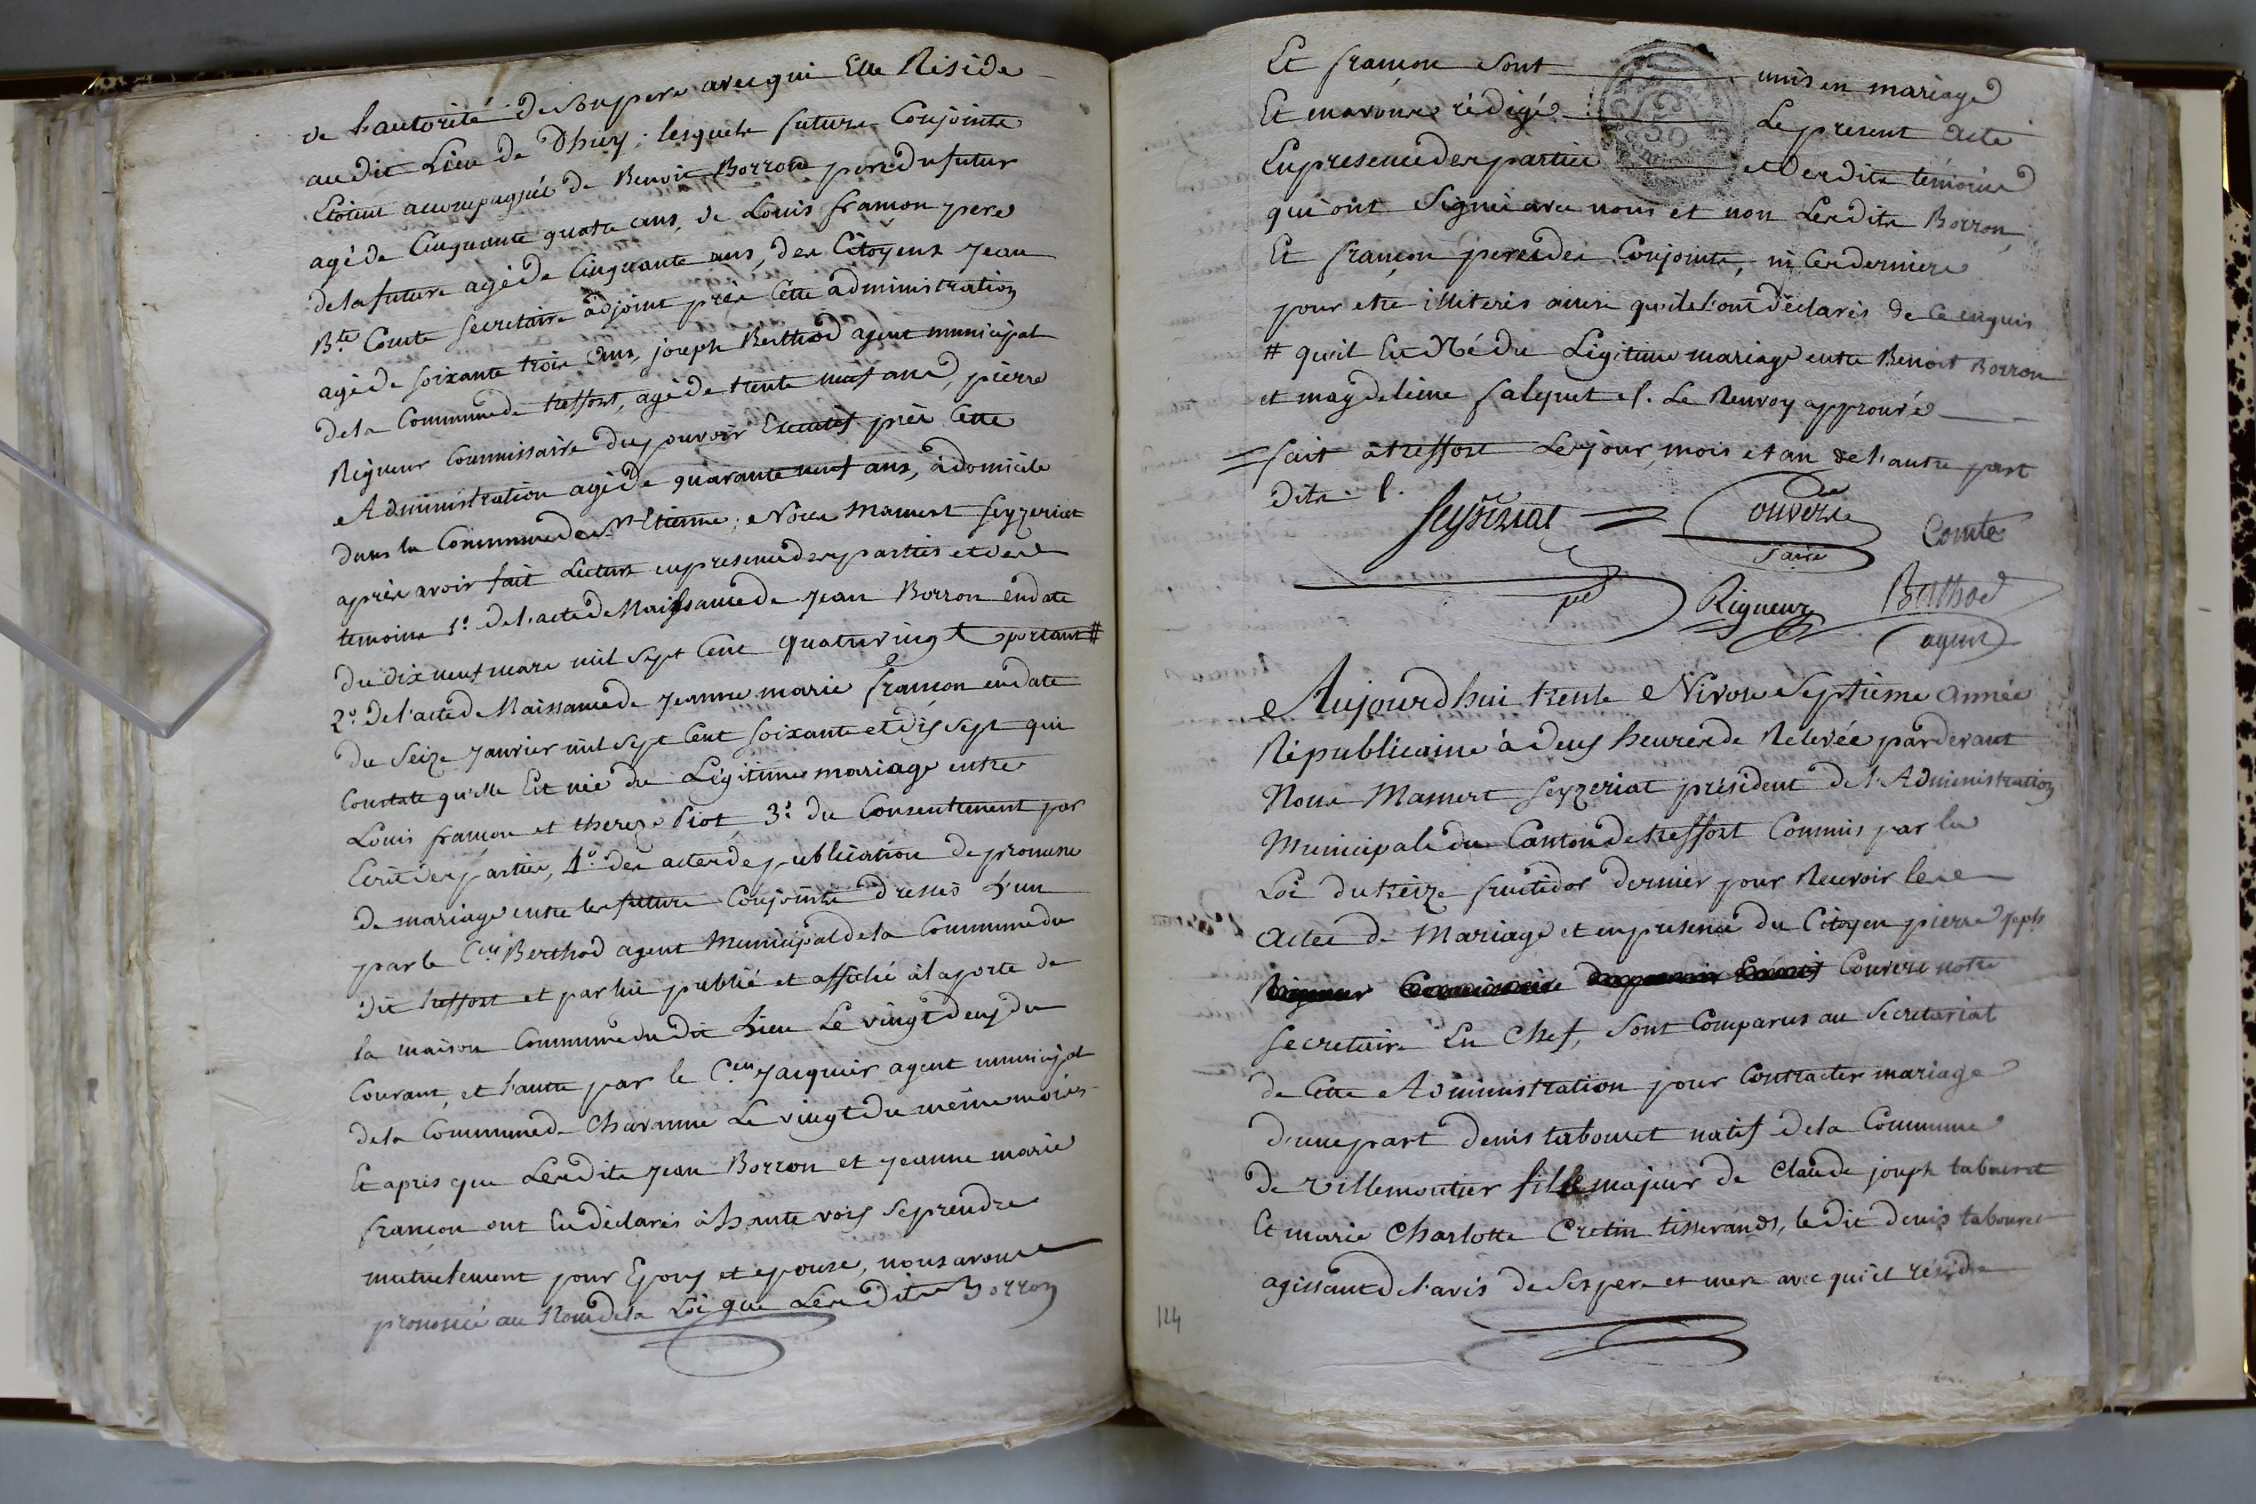 de l'autorité de son pere avec qui Elle Reside
au dit Lieu de Dhuys ; lesquels futurs Conjoints
Etoient accompagnés de Benoit Borron pere du futur
agé de Cinquante quatre ans, de Louis françon pere
de la future agé de Cinquante ans, des Citoyens Jean
Bte Comte Secretaire adjoint près Cette administration
agé de soixante trois ans, joseph Berthod agent municipal
de la Commune de treffort, agé de trente neuf ans, pierre
Rigueur Commissaire du pouvoir Executif près Cette
Administration agé de quarante neuf ans, à domicile
dans la Commune de St Etienne ; Nous Mamert Seyzeriat
après avoir fait Lecture en presence des parties et des
temoins 1º. de l'acte de Naissance de Jean Borron en date
du dix neuf mars mil sept Cent quatrevingt portant #
2º. de l'acte de Naissance de Jeanne marie françon en date
du Seize Janvier mil sept Cent soixante et dix sept qui
Constate qu'elle Est née du Légitime mariage entre
Louis françon et thereze Piot, 3º. du Consentement par
Ecrit des parties, 4º. des actes de publication de promesse
de mariage entre les futurs Conjoints dressés l'un
par le Cen Berthod agent Municipal de la Commune du
dit treffort et par lui publié et affiché à la porte de
la maison Commune du dit Lieu Le vingt deux du
Courant, et l'autre par le Cen Jacquier agent municipal
de la Commune de Chavanne Le vingt du même mois
Et après que Lesdits Jean Borron et Jeanne marie
françon ont Eu déclarés à haute voix se prendre
mutuelement pour Epoux et epouse, nous avons
prononcé au Nom de la Loi que Lesdits Borron
Et françon sont unis en mariage
Et en avons rédigé Le present acte
En presence des parties et desdits témoins
qui ont Signé avec nous et non Lesdits Borron
Et françon peres des Conjoints, ni Ces derniers
pour etre illiterés ainsi qu'ils l'ont déclarés de Ce enquis
# qu'il Est Né du Légitime mariage entre Benoit Borron
et magdeleine Salquet . Le Renvoy approuvé
= fait à treffort Les jour, mois et an de l'autre part
dits .
Seyzeriat
Couvers
Comte
Saire
pdt
Rigueur
Berthod
agent
Aujourd'hui trente Nivose Septieme Année
Républicaine à deux heures de Relevée pardevant
Nous Mamert Seyzeriat président de l'Administration
Municipale du Canton de treffort Commis par la
Loi du treize fructidor dernier pour Recevoir les
actes de Mariage et en presence du Citoyen pierre Jph
Rigueur Commissaire du pouvoir Executif Couvers notre
Secretaire En Chef, sont Comparus au Secretariat
de Cette Administration pour Contracter mariage
d'une part denis tabouret natif de la Commune
de villemoutier fils majeur de Claude joseph tabouret
Et marie Charlotte Cretin tisserands, le dit denis tabouret
agissant de l'avis de Ses pere et mere avec qui il réside
124